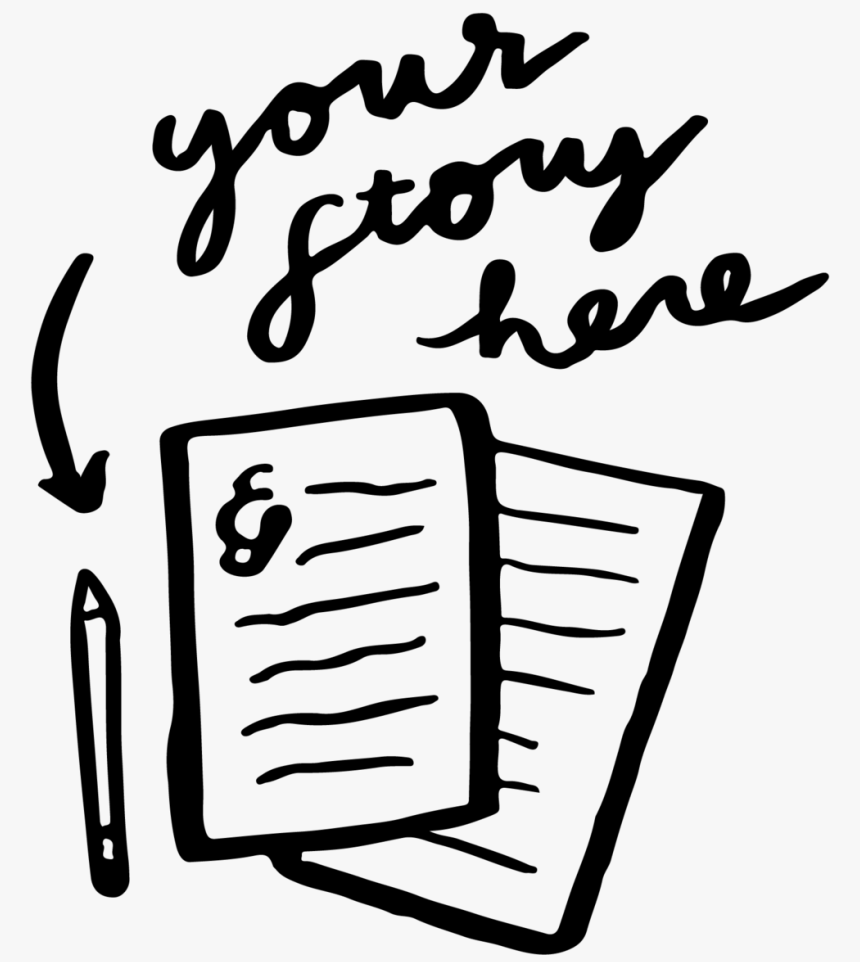 your
story
here